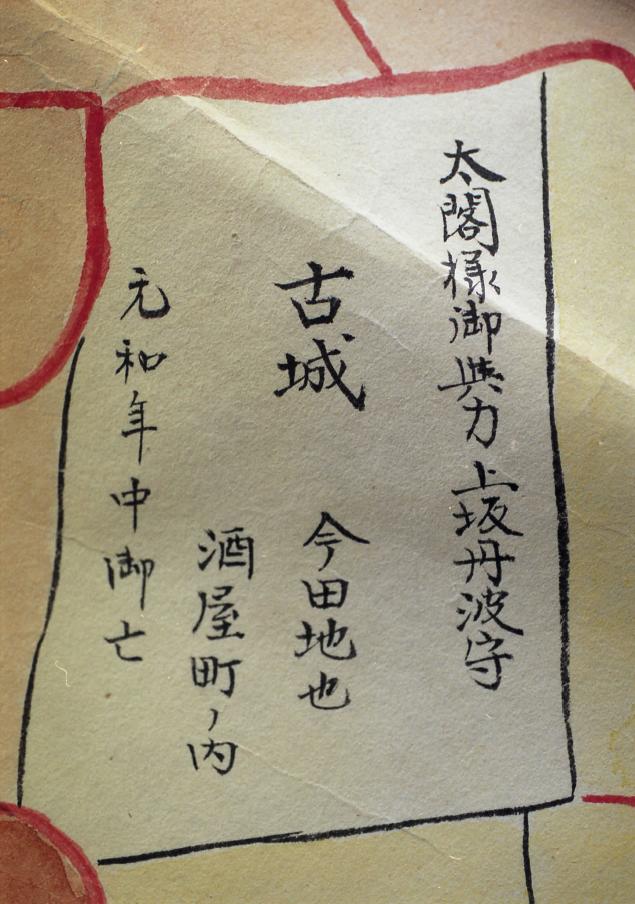 太閤様御與力 上坂丹波守
古城 今田地也
酒屋町ノ内
元和年中御亡